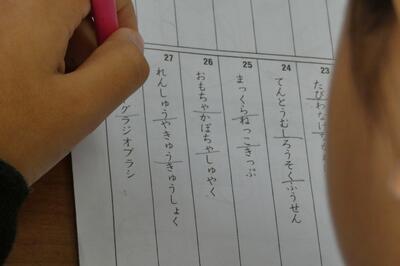 23
たびわなげ
24
てんとうむしろうそくふうせん
25
まっくらねっこきっぷ
26
おもちゃかぼちゃしゅやく
27
れんしゅうやきゅうきゅうしょく
グラジオブラシ